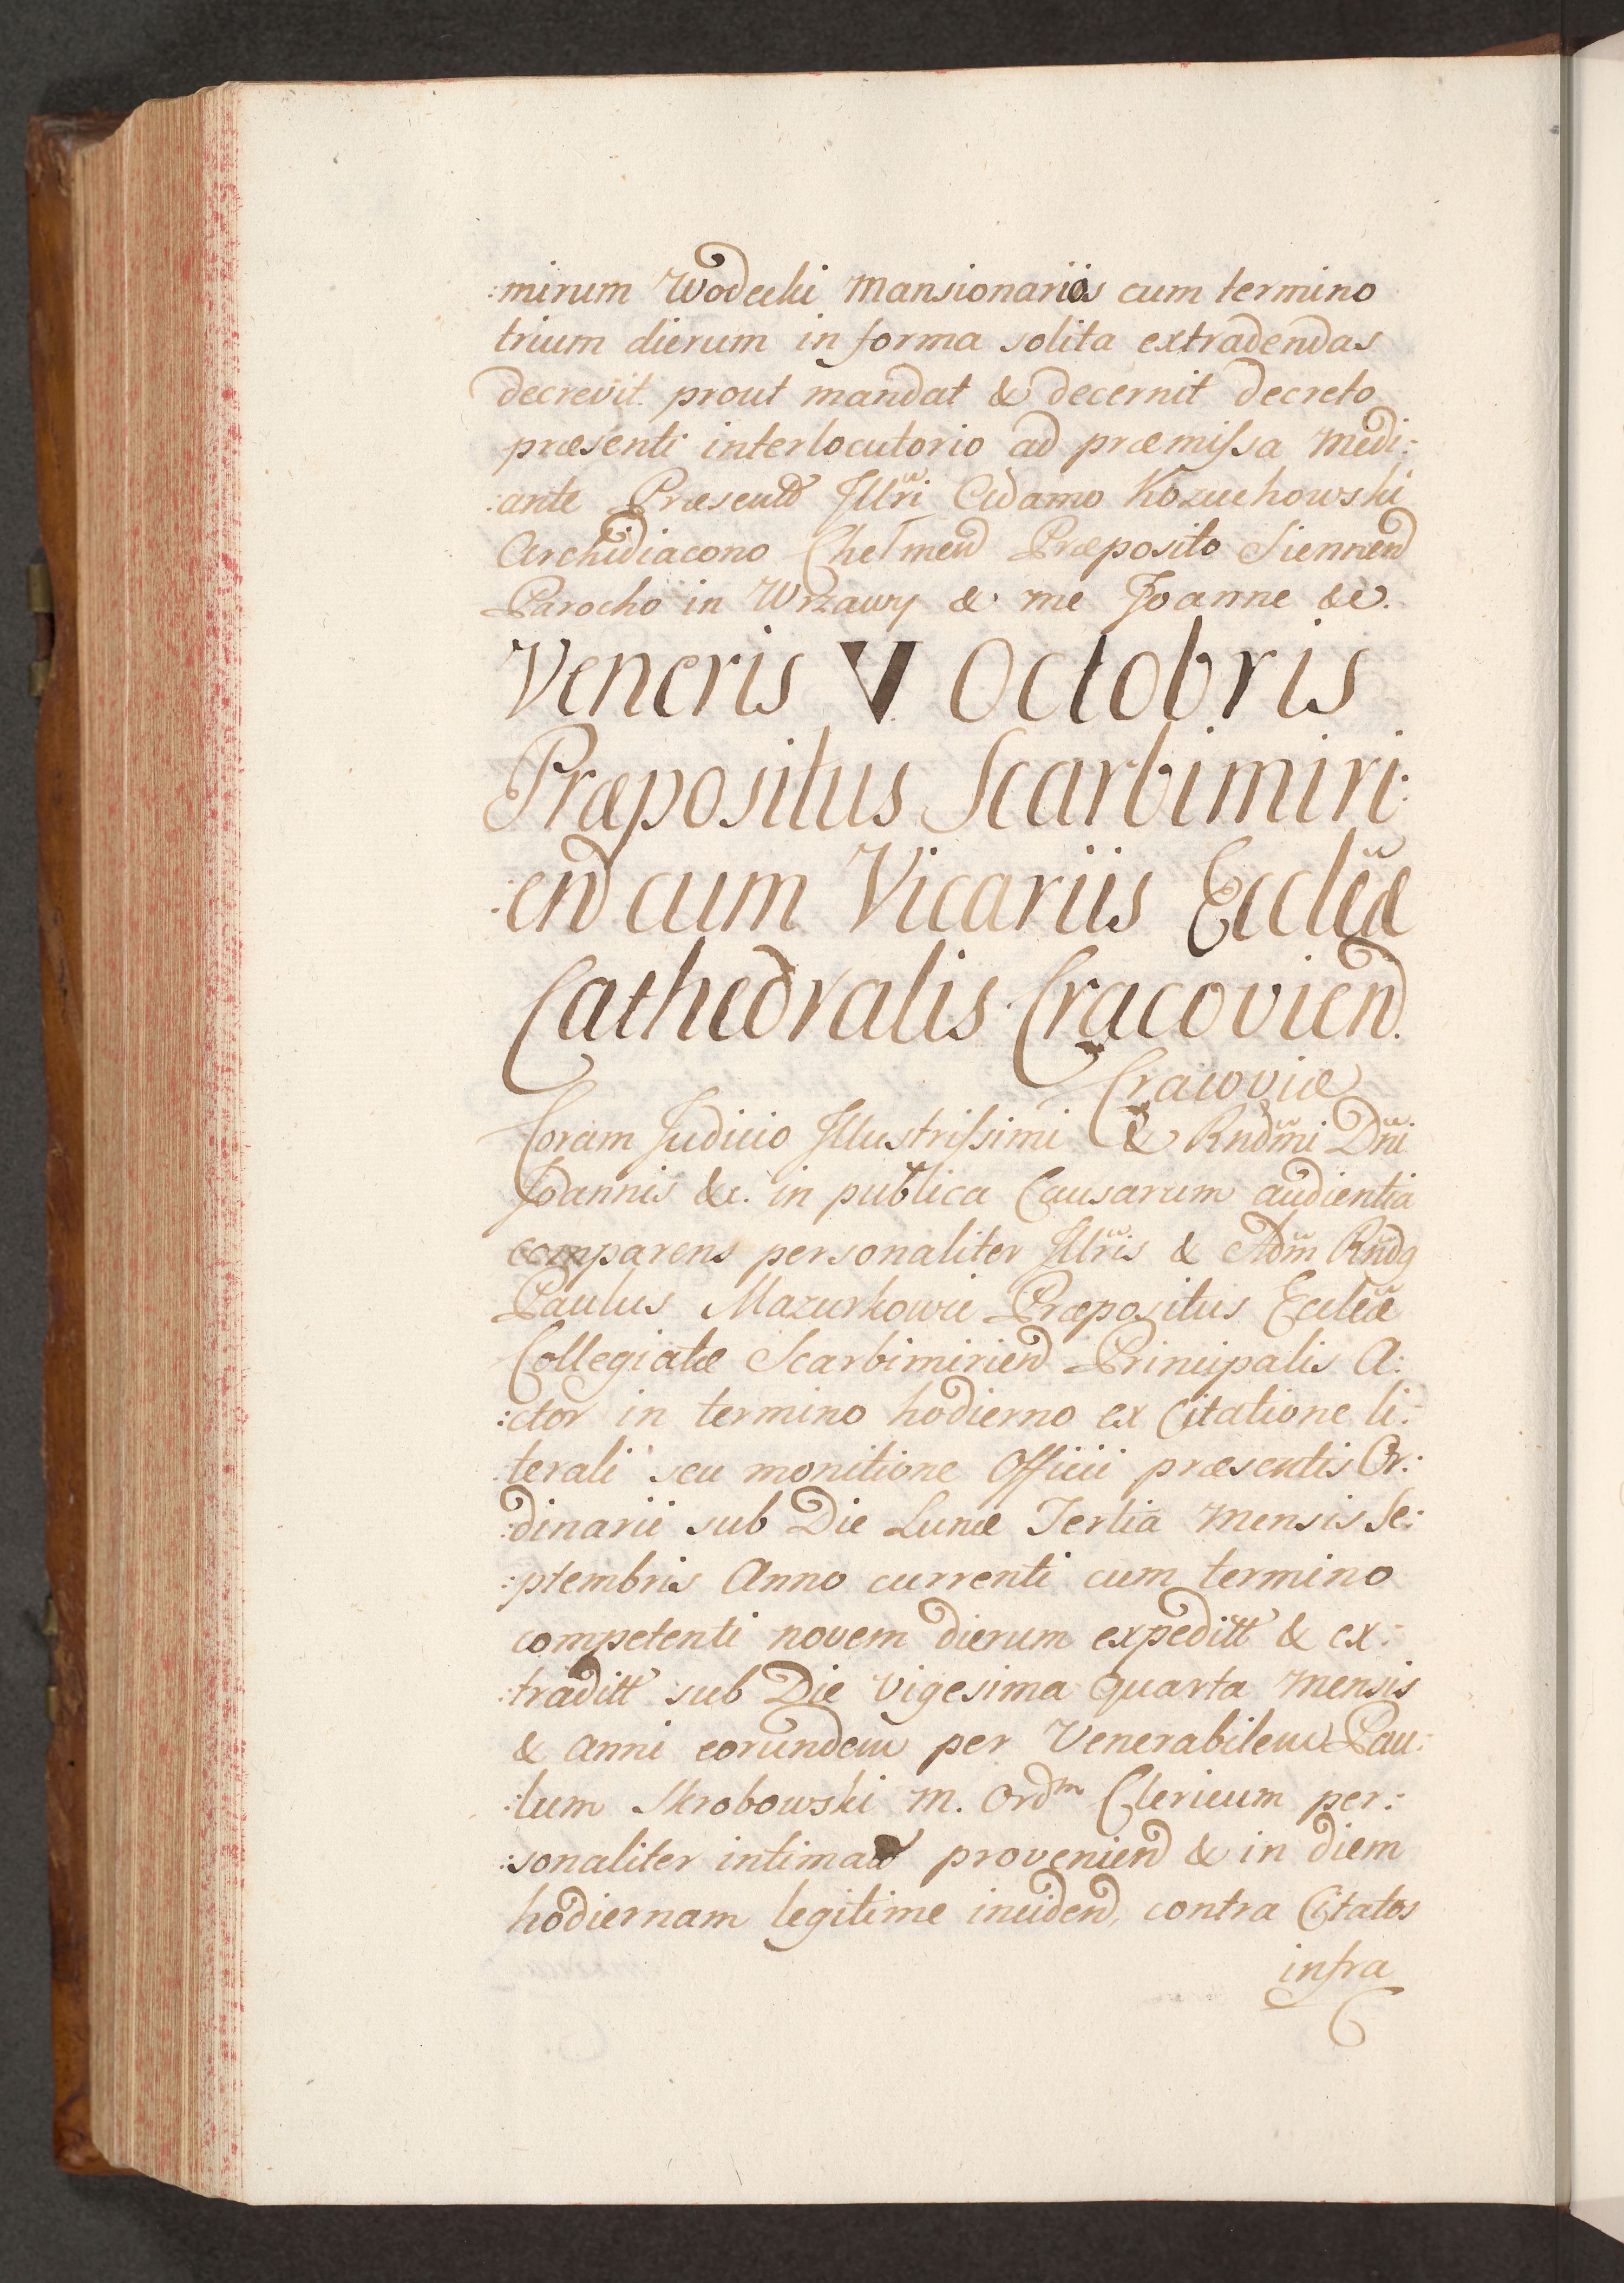 :mirum Wodecki Mansionarios cum termino
trium dierum in forma solita extradendas
decrevit prout mandat & decernit decreto
præsenti interlocutorio ad præmissa medi:
:ante Præsentt Illri Adamo Kozuchowski
Archidiacono Chelmen Præposito Siennen
Parocho in Wrzawy & me Joanne &c.
Veneris V Octobris
Præpositus Scarbimiri:
:en cum Vicariis Eccliæ
Cathedralis Cracovien.
Cracoviæ
Coram Judicio Illustrissimi & Rndmi Dni
Joannis &c. in publica Causarum audientia
comparens personaliter Illris & Adm Rndq
Paulus Mazurkowic Præpositus Eccliæ
Collegiatæ Scarbimirien Principalis A:
:ctor in termino hodierno ex Citatione li:
terali seu monitione Officii præsentis Or:
:dinarii sub Die Lunæ Tertia Mensis Se:
:ptembris Anno currenti cum termino
competenti novem dierum expeditt & ex:
:traditt sub Die vigesima quarta Mensis
& anni eorundem per Venerabilem Pau:
:lum Skrobowski M. Ordm Clericum per:
:sonaliter intimat provenien & in diem
hodiernam legitime inciden, contra Citatos
infra